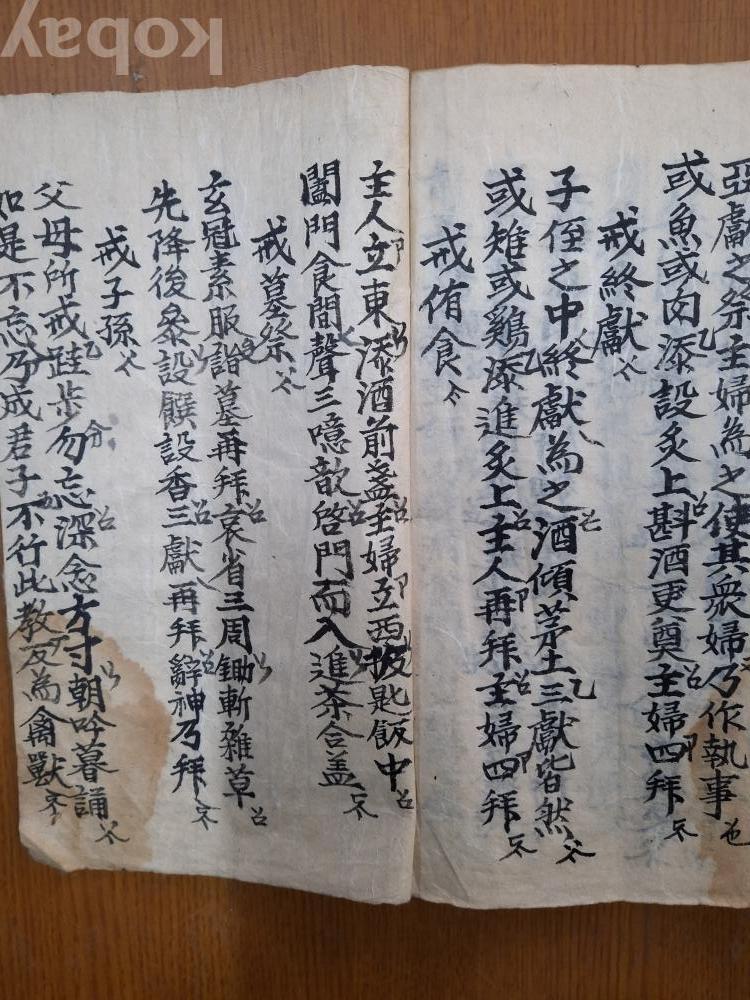 kobay
亞獻之祭主婦為之使其衆婦乃作執事
或魚或肉添設炙上斟酒更奠主婦四拜
戒終獻
子侄之中終獻為之酒傾茅土三獻皆然
或雉或鷄添進炙上主人再拜主婦四拜
戒侑食
主人立東添酒前盞主婦立西扱匙飯中
闔門食間聲三噫歆啓門而入進茶合盖
戒墓祭
玄冠素服詣墓再拜哀省三周鋤斬雜草
先降後叅設饌設香三獻再拜辭神乃拜
戒子孫
父母所戒跬步勿忘深念方寸朝吟暮誦
如是不忘乃成君子不行此教反為禽獸